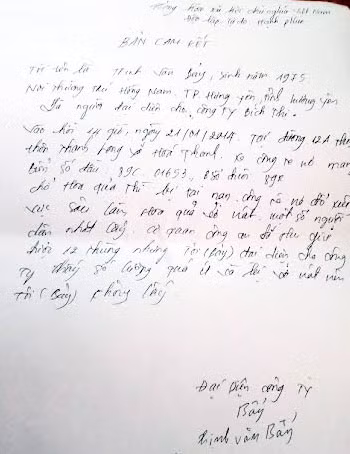 Cộng Hòa xã Hội chủ nghĩa Việt Nam
Độc lập, tự do, Hạnh phúc
BẢN CAM KẾT
Tôi tên là Trịnh Văn Bảy, sinh năm 1975
Nơi thường trú Hồng Nam, TP Hưng yên, tỉnh Hưng yên
là người đại diện cho công TY Bích Thị.
Vào hồi 14 giờ, ngày 21/1/2014. Tại đường 12A
thôn Thanh Long xã Hoá Thanh. Xe công te nơ mang
Biển số đầu, 89C. 01653,
chở Hoa quả Thì bị tai nạn, công te nơ đổ xuống
vực sâu làm Hoa quả vỡ nát. một số người
dân nhặt lấy. cơ quan công an đã thu giữ
được 12 thùng nhưng Tôi (Bảy) đại diện cho công
TY thấy số lượng quá ít và bị vỡ nát nên
Tôi (Bảy) không lấy
Đại Diện công TY
Bảy
Trịnh văn Bảy